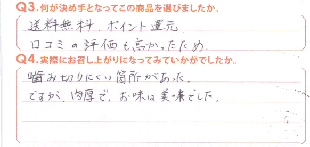 Q3.何が決め手となってこの商品を選びましたか。
送料無料 ポイント還元
口コミの評価も高かったため
Q4.実際にお召し上がりになってみていかがでしたか。
噛み切りにくい箇所があった。
ですが、肉厚で、お味は美味でした。